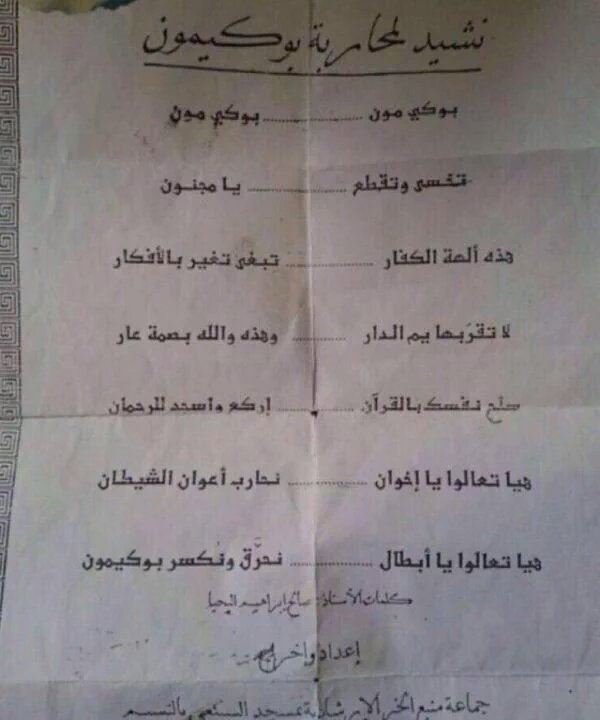 نشيد لمحاربة بوكيمون
بوكي مون ........ بوكي مون
تخسى وتقطع ........ يا مجنون
هذه ألهة الكفار ........ تبغى تغير بالأفكار
لا تقرّبها يم الدار ........ وهذه والله بصمة عار
صلح نفسك بالقرآن ........ إركع واسجد للرحمان
هيا تعالوا يا إخوان ........ نحارب أعوان الشيطان
هيا تعالوا يا أبطال ........ نحرَّق ونُكسر بوكيمون
كلمات الأستاذ: صالح ابراهيم اليحيا
إعداد وإخراج
جماعة منبع الخير الإرشادية بمسجد بالنسيم